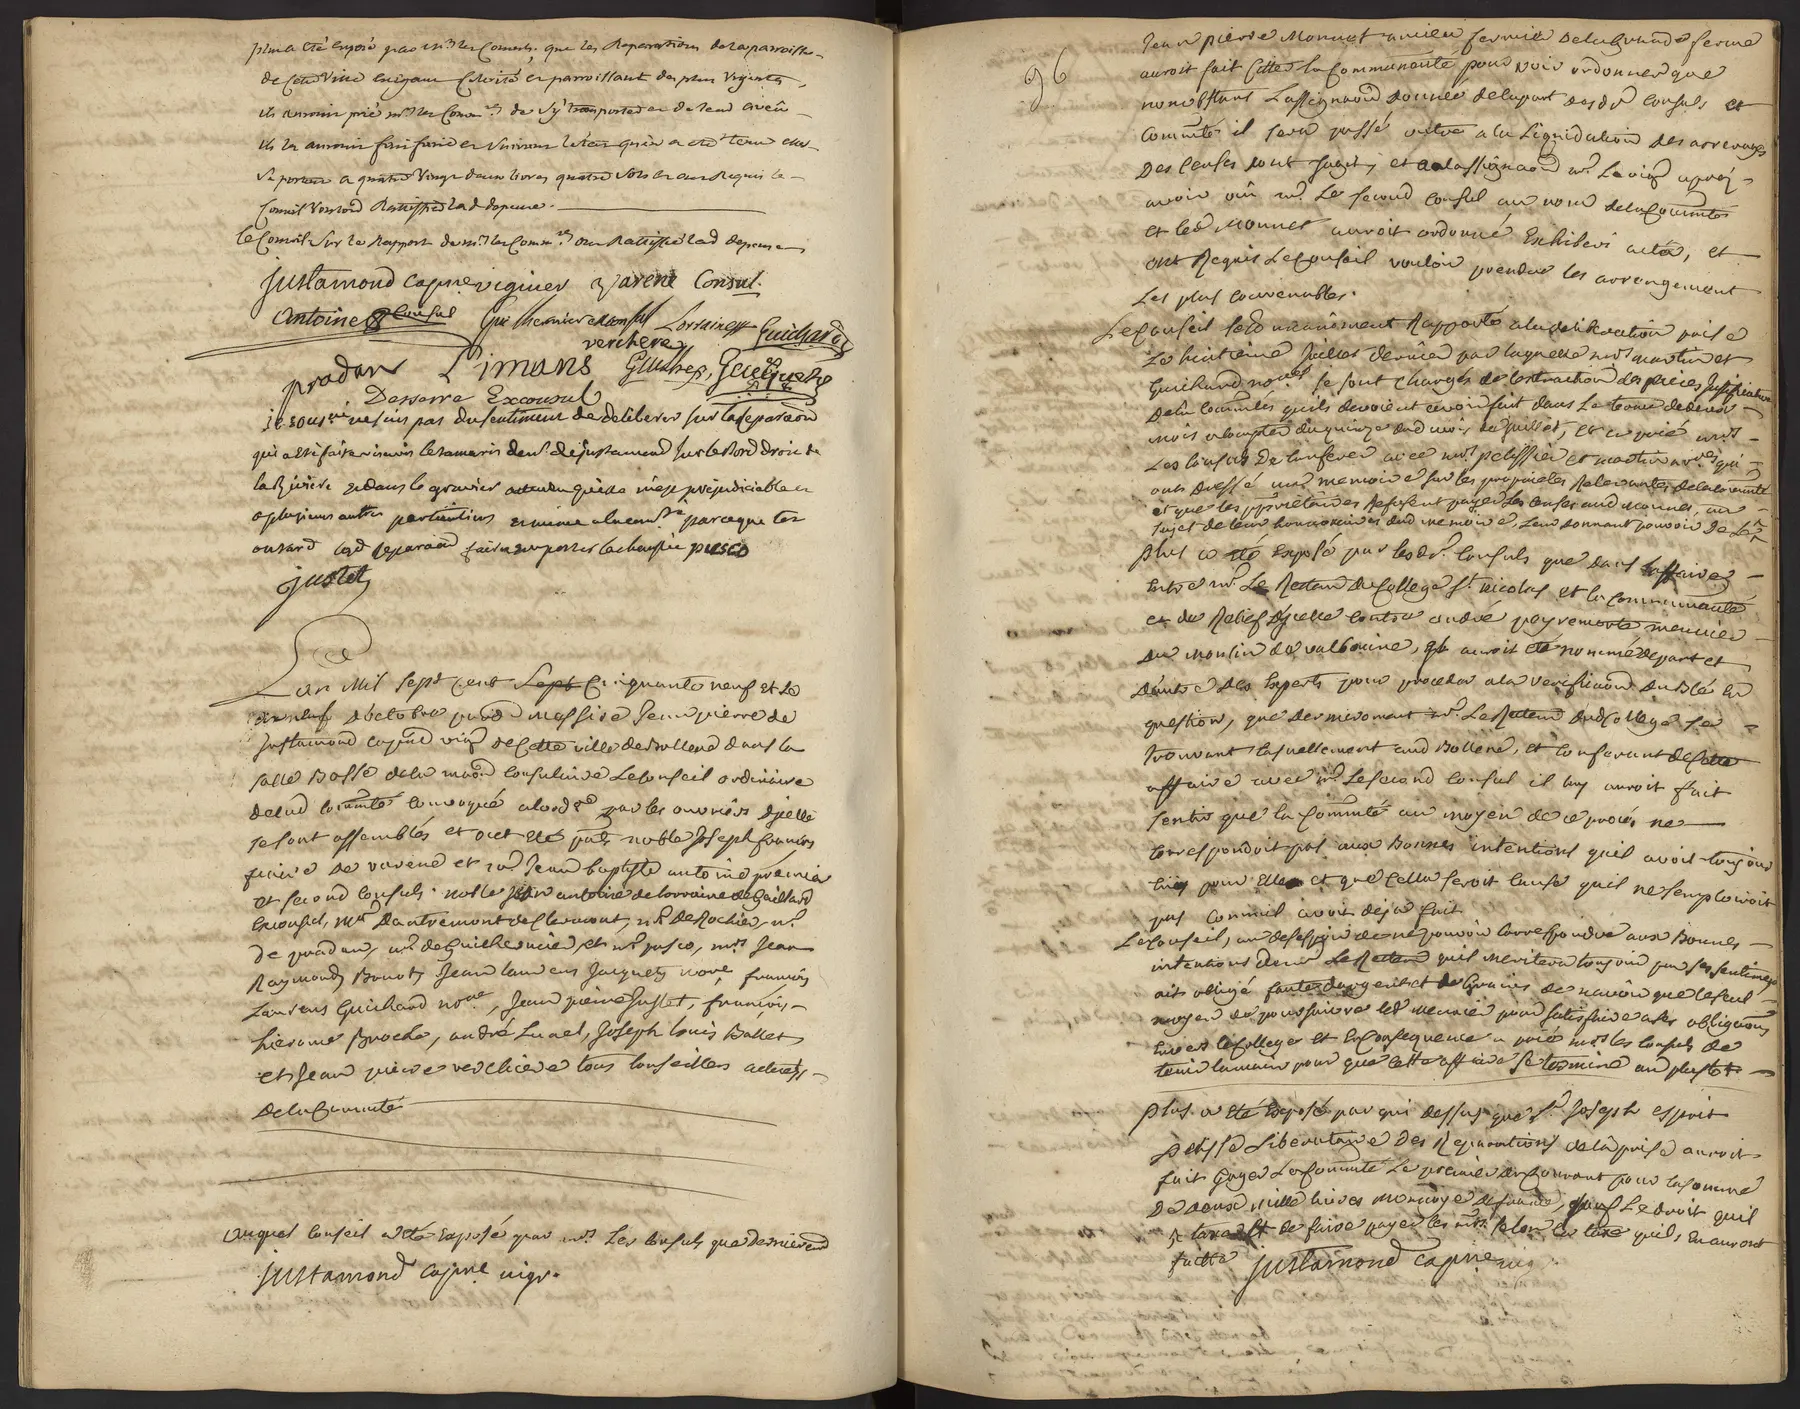 plus a été exposé par mrs les Consuls, que les Reparations de la paroisse
de cette ville exigeant celerité et paroissant des plus urgentes,
ils auroient prié mrs les Comres de s'y transporter et de leur aveu
ils les auroient fait faire et suivant l'état qu'en a été tenu elles
se portent a quatre vingt deux livres quatre sols et ont Requis le
Conseil vouloir Ratiffier lad depense.
le Conseil sur le Rapport de mrs les Comres ont Ratiffié lad depense
justamond capne viguier varene Consul.
Antoine Consul Guilhermier exconsul Lorraine Guichard
verchere
pradan L'imans Geu
Desserre Exconsul
je soussné ne suis pas du sentiment de deliberer sur la separaon
qui a esté faite vis avis le tamaris de mr de justamond sur le bord droit de
la Riviere et dans le gravier attendu qu'elle n'est prejudiciable et
a plusieurs autres particuliers et meme a la comté parce que les
lad separaon faira emporter la chaussée pusco
justet
L'an mil sept cent Sept Cinquante neuf et le
dix neuf d'octobre pardt Messire Jean pierre de
Justamond capne vigr de cette ville de Bollene dans la
salle Basse de la maon Consulaire Le Conseil ordinaire
de lad Comunté convoqué a la voix par les ouvriers d'jcelle
se sont assemblés et ont été pnts noble Joseph francois
de varene et mr Jean baptiste antoine premier
et second Consuls. noble antoine de lorraine de Gaillard
Exconsul, mrs Dautremont de Claramont, mr De Rochier, mr
de pradan, mr de Guilhermier, et mr pusco, mrs Jean
Raymond Benoit, Jean laurens Jacques nore, francois
Laurens Guichard nore, Jean pierre Justet, francois
hierome Broche, andré Lunel, Joseph louis Ballet
et Jean pierre verchere tous conseillers actuels
de la Comunté
auquel conseil a été exposé par mrs Les Consuls que dernierement
justamond capne vigr.
96
Jean pierre Monnet ancien fermier de la grande ferme
auroit fait citter la Communauté pour voir ordonner que
nonobstant L'assignaon donnée de la part desd srs Consuls et
Comunté il sera passé outre a la Liquidation des arrerages
des censes dont s'agit, et a la assignaon mr Le vigr apres
avoir oüi mr Le second Consul au nom de la Comunté
et led Monnet auroit ordonné Exhiberi acta, et
ont Requis Le Conseil vouloir prendre les arrangement
Les plus convenables.
Le Conseil s'est unanimement Rapporté a la deliberation prise
Le huitieme Juillet dernier par laquelle mrs martin et
Guichard nores se sont chargés de l'extraction des pieces Justificatives
de la Comunté, qu'ils devoient avoir fait dans Le terme de deux
mois a compter du quinze dud mois de juillet, et a prié mrs
Les Consuls de Conferer avec mrs pelissier et martin nores qui
ont dressé un memoire sur les proprietés Relevantes de la Comunté
et que les proprietaires Refusent payer les censes aud Monnet, au
sujet de leur honnoraires dud memoire, leur donnant pouvoir de
plus a été exposé par lesd srs Consuls que dans l'affaire
entre mr Le Recteur du College St nicolas et la Communauté
et de Relief d'jcelle contre andré peyremorte meunier
du moulin de valbonne, qu'il auroit été nommé de part et
d'autre des Experts pour proceder a la verification du Blé en
question, que dernierement mr Le Recteur dud College se
trouvant casuellement aud Bollene, et conferant de cette
affaire avec mr Le second Consul il luy auroit fait
sentir que la Comunté au moyen de ce procés ne
correspondoit pas aux Bonnes intentions qu'il avoit toujours
eües pour Elle et que cella seroit cause qu'il ne s'employeroit
pas comm'il avoit deja fait
Le Conseil, au desespoir de ne pouvoir correspondre aux Bonnes
intentions de mr Le Recteur qu'il meritera toujours par ses sentimens
ait obligé faute d'argent et de Grains de n'avoir que le seul
moyen de poursuivre led meunier pour satisfaire a ses obligaons
Envers le College et en consequence a prié mrs les Consuls de
tenir la main pour que cette affaire se termine au plustot
plus a été Exposé par qui dessus que Sr Joseph esprit
deliberataire des Reparations de la prise auroit
fait gager La Comunté Le premier du Courant pour la somme
de deux mille livres monnoye de france, sauf Le droit qu'il
de faire payer les mrs selon la taxe qu'ils en auront
faitte justamond capne vig